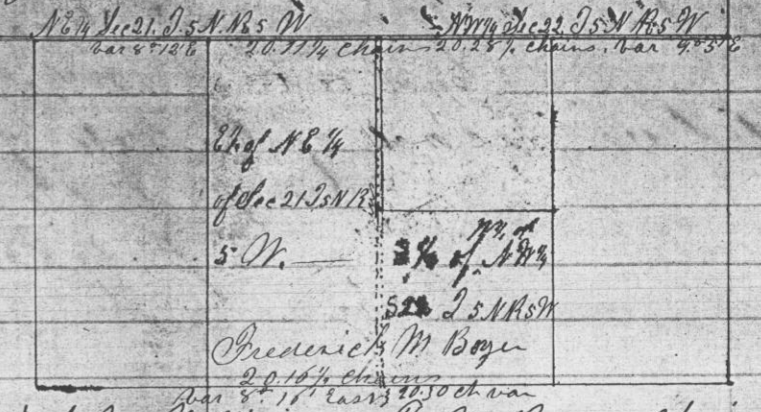 NE 1/4 Sec 21. T 5 N. R 5 W NW 1/4 Sec 22. T 5 N R 5 W
Var 8° 12' E 20.11 1/4 chains 20.28 1/2 chains. Var 9° 5' E
E 1/2 of NE 1/4
of Sec 21 T 5 N R
5 W.
W 1/2 of
of NW 1/4
S 22 T 5 N R 5 W
Frederick M Boyer
20.16 1/2 chains
Var 8° 16' East 20.30 ch var